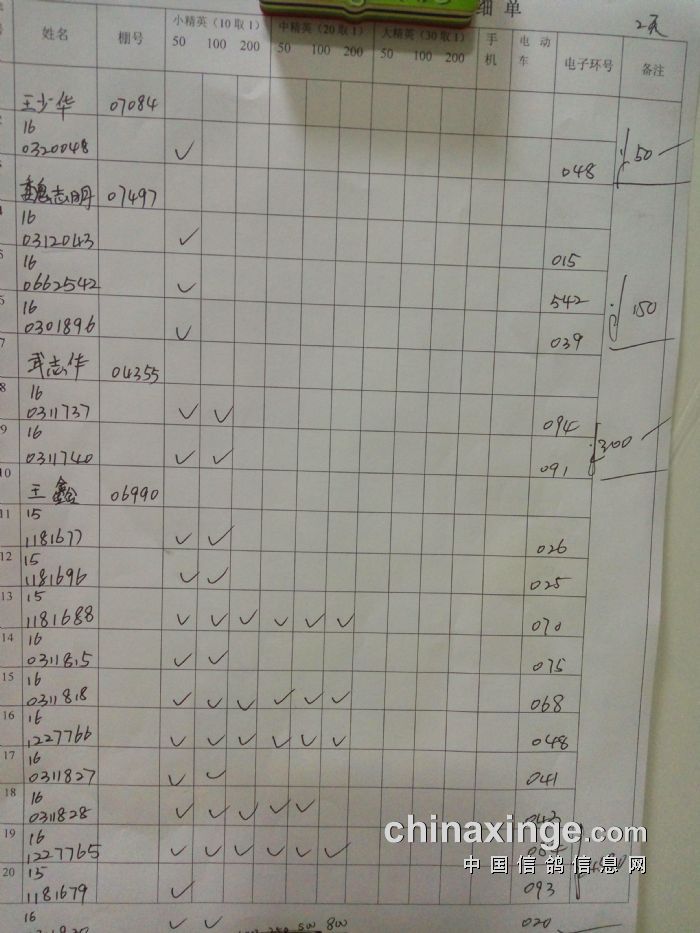 细 单
2页
姓名 棚号 小精英（10取1） 中精英（20取1） 大精英（30取1） 手机 电动车 电子环号 备注
50 100 200 50 100 200 50 100 200
王少华 07084
16
0320048 ✓ 048 50
魏志明 07497
16
0312043 ✓ 015
16
0662542 ✓ 542 150
16
0301896 ✓ 039
7 武志华 04355
8 16
0311737 ✓ ✓ 094
9 16
0311740 ✓ ✓ 091 300
10 王鑫 06990
11 15
1181677 ✓ ✓ 026
12 15
1181696 ✓ ✓ 025
13 15
1181688 ✓ ✓ ✓ ✓ ✓ ✓ 070
14 16
0311815 ✓ ✓ 075
15 16
0311818 ✓ ✓ ✓ ✓ ✓ ✓ 068
16 16
1227766 ✓ ✓ ✓ ✓ ✓ ✓ 048
17 16
0311827 ✓ ✓ 041
18 16
0311828 ✓ ✓ ✓ ✓ ✓
chinaxinge.com
19 16
1227765 ✓ ✓ ✓ ✓ ✓ ✓
中国信鸽信息网
20 15
1181679 ✓ 093
16
✓ ✓ 020
500 800